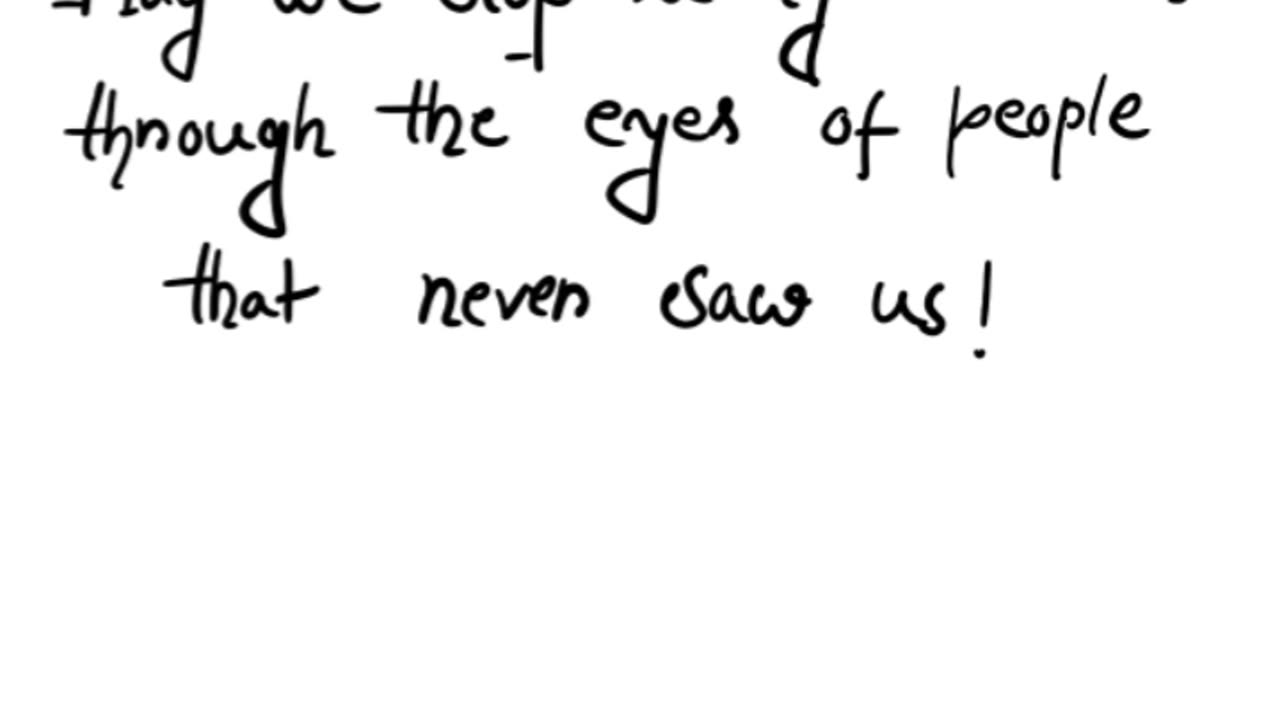 we
through the eyes of people
that never saw us!